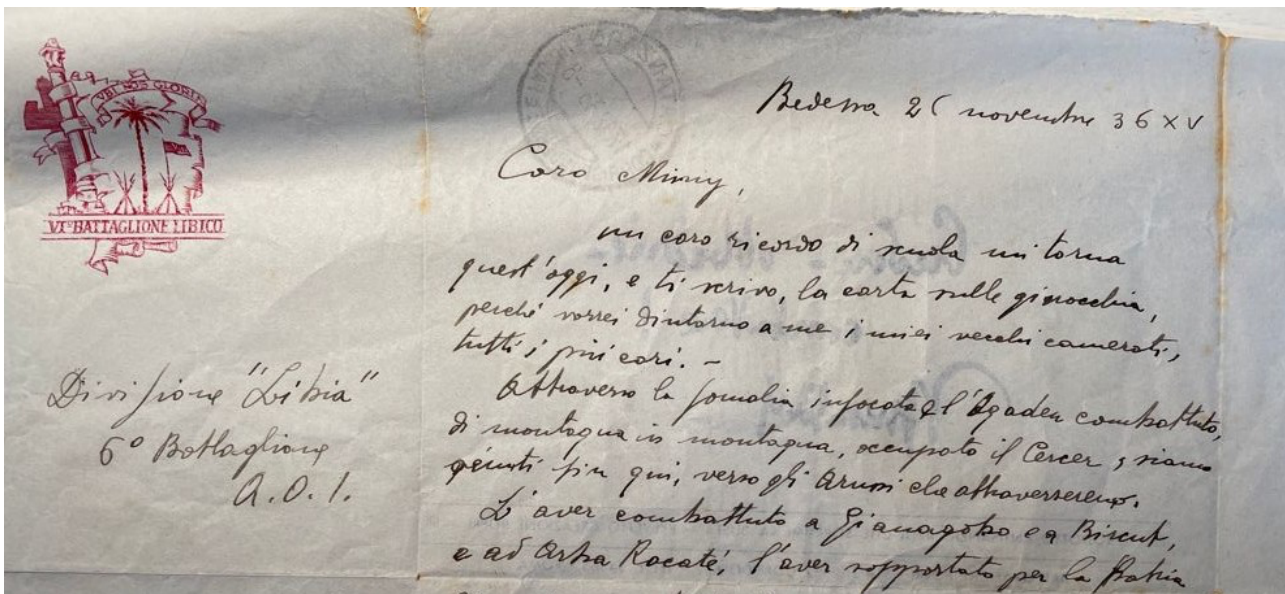 UBI NOS GLORIA
VI° BATTAGLIONE LIBICO
Divisione "Libia"
6° Battaglione
A.O.I.
Bedessa 26 novembre 36 XV
Caro Mimy,
un caro ricordo di scuola mi torna
quest'oggi, e ti scrivo, la carta sulle ginocchia,
perché vorrei dintorno a me i miei vecchi camerati,
tutti i più cari. -
Attraverso la Somalia infocata e l'Ogaden combattuto,
di montagna in montagna, occupato il Cercer, siamo
giunti fin qui, verso gli Arussi che attraverseremo.
L'aver combattuto a Gianagobo e a Bircut,
e ad Arba Racaté, l'aver sopportato per la Patria